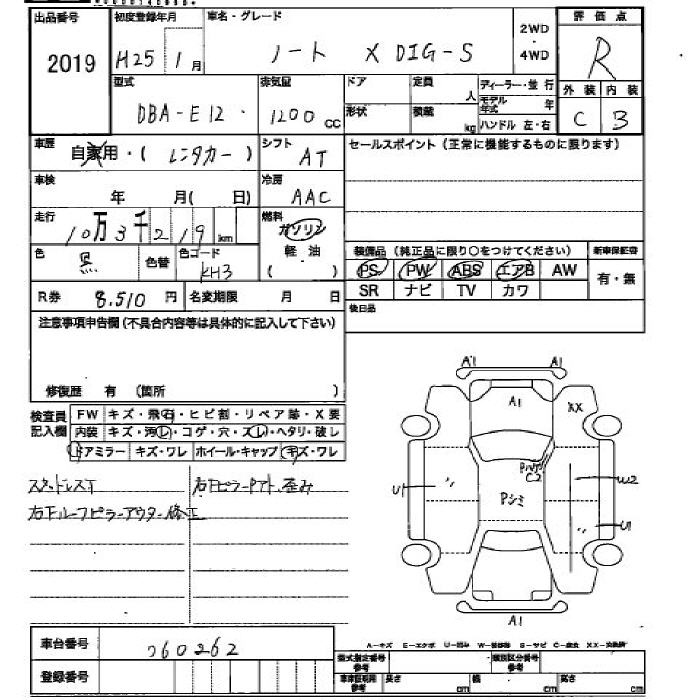 出品番号 初度登録年月 車名・グレード 評価点
2019 H25 1月 ノート X DIG-S 2WD・4WD R
型式 排気量 ドア 定員 ディーラー・並行 外装 内装
DBA-E12 1200cc 人 モデル年式 年 C 3
形状 積載 kg ハンドル 左・右
車歴 自家用・(レンタカー) シフト AT セールスポイント(正常に機能するものに限ります)
車検 年 月( 日) 冷房 AAC
走行 10万3千219km 燃料 ガソリン
軽油
( )
色 黒 色替 色コード KH3
装備品(純正品に限り○をつけてください) 新車保証書
PS PW ABS エアB AW 有・無
SR ナビ TV カワ
R券 8,510円 名変期限 月 日 後日品
注意事項申告欄(不具合内容等は具体的に記入して下さい)
修復歴 有 (箇所 )
検査員記入欄 FW キズ・飛石・ヒビ割・リペア跡・X要
内装 キズ・汚レ・コゲ・穴・スレ・ヘタリ・破レ
ドアミラー キズ・ワレ ホイール・キャップ キズ・ワレ
スタッドレスT 右FピラーPアト、歪み
右Fルーフピラーアウター修正
A1 A1
A1 XX
C2
U1 Pシミ W2
U1
A1
車台番号 060262
登録番号
A-キズ E-エクボ U-凹み W-補修跡 S-サビ C-腐食 XX-交換済
型式指定番号参考 類別区分番号参考
車庫証明用参考 長さ cm 幅 cm 高さ cm